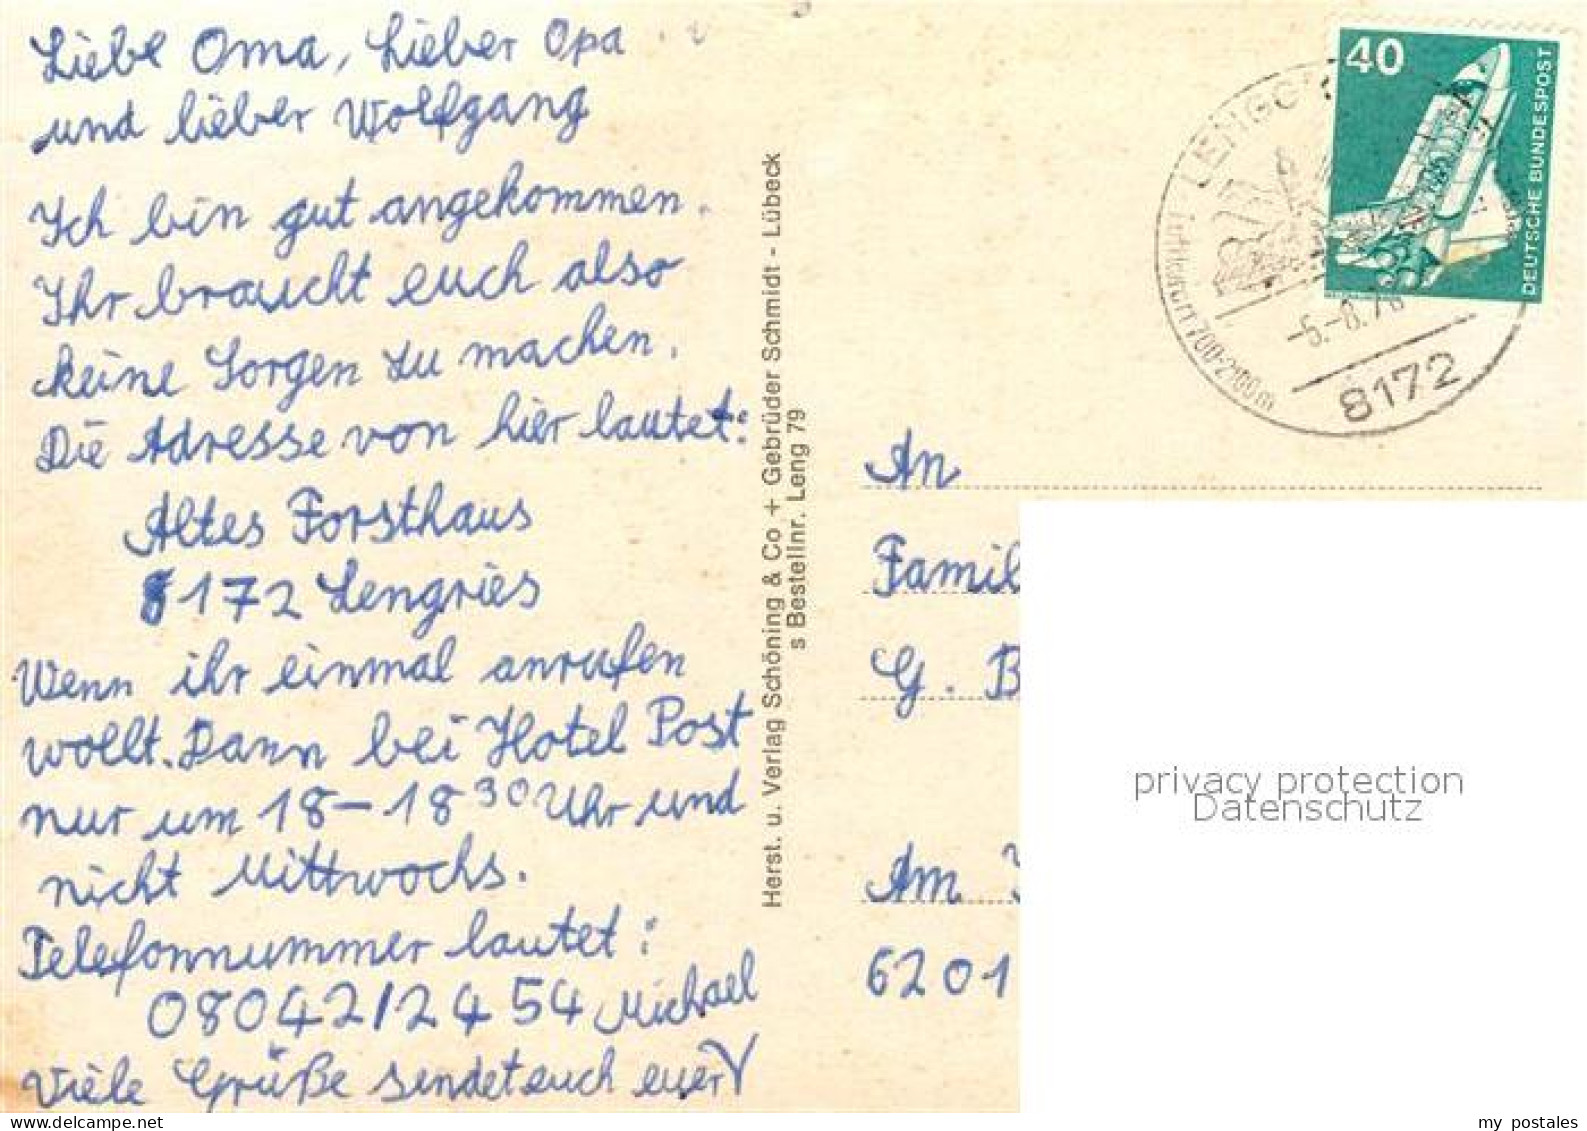 Liebe Oma, Lieber Opa
und lieber Wolfgang
Ich bin gut angekommen.
Ihr braucht euch also
keine Sorgen zu machen.
Die Adresse von hier lautet:
Altes Forsthaus
8172 Lengries
Wenn ihr einmal anrufen
wollt. Dann bei Hotel Post
nur um 18-18 30 Uhr und
nicht Mittwochs.
Telefonnummer lautet:
08042/2454 Michael
Viele Grüße sendet euch euer
Herst. u. Verlag Schöning & Co + Gebrüder Schmidt - Lübeck
s Bestellnr. Leng 79
40
DEUTSCHE BUNDESPOST
700-2100m
8172
An
Famil
G. B
Am
6201
privacy protection
Datenschutz
my postales